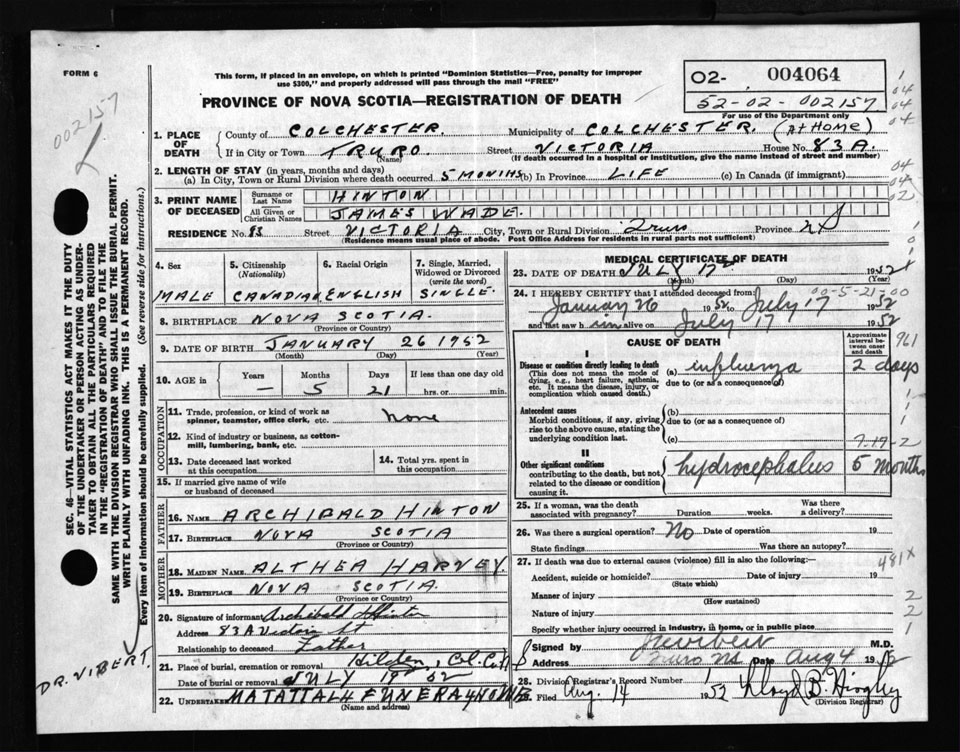 FORM 6
This form, if placed in an envelope, on which is printed "Dominion Statistics—Free, penalty for improper
use $300," and properly addressed will pass through the mail "FREE"
PROVINCE OF NOVA SCOTIA—REGISTRATION OF DEATH
02- 004064
52-02-002157
For use of the Department only
002157
1. PLACE OF DEATH
County of COLCHESTER. Municipality of COLCHESTER. (AT HOME)
If in City or Town TRURO. Street VICTORIA House No. 83A.
(Name) (If death occurred in a hospital or institution, give the name instead of street and number)
2. LENGTH OF STAY (in years, months and days)
(a) In City, Town or Rural Division where death occurred 5 MONTHS (b) In Province LIFE (c) In Canada (if immigrant)
3. PRINT NAME OF DECEASED
Surname or Last Name HINTON
All Given or Christian Names JAMES WADE.
RESIDENCE No. 83 Street VICTORIA City, Town or Rural Division Truro Province NS
(Residence means usual place of abode. Post Office Address for residents in rural parts not sufficient)
4. Sex MALE
5. Citizenship (Nationality) CANADIAN
6. Racial Origin ENGLISH
7. Single, Married, Widowed or Divorced (write the word) SINGLE.
8. BIRTHPLACE NOVA SCOTIA.
(Province or Country)
9. DATE OF BIRTH JANUARY 26 1952
(Month) (Day) (Year)
10. AGE IN Years Months Days If less than one day old
— 5 21 hrs. or min.
OCCUPATION
11. Trade, profession, or kind of work as spinner, teamster, office clerk, etc. None
12. Kind of industry or business, as cotton-mill, lumbering, bank, etc.
13. Date deceased last worked at this occupation
14. Total yrs. spent in this occupation
15. If married give name of wife or husband of deceased
FATHER
16. NAME ARCHIBALD HINTON
17. BIRTHPLACE NOVA SCOTIA
(Province or Country)
MOTHER
18. MAIDEN NAME ALTHEA HARVEY.
19. BIRTHPLACE NOVA SCOTIA.
(Province or Country)
20. Signature of informant Archibald Hinton
Address 83A Victoria St
Relationship to deceased Father
21. Place of burial, cremation or removal Hilden, Col. Co.
Date of burial or removal JULY 19 52
22. UNDERTAKER MATTATALL FUNERAL HOME
(Name and address)
MEDICAL CERTIFICATE OF DEATH
23. DATE OF DEATH JULY 17 1952
(Month) (Year)
00-5-21-00
24. I HEREBY CERTIFY that I attended deceased from:
January 26 1952 to July 17 1952
and last saw him alive on July 17 1952
CAUSE OF DEATH
Approximate interval between onset and death
961
I
Disease or condition directly leading to death
(This does not mean the mode of dying, e.g., heart failure, asthenia, etc. It means the disease, injury, or complication which caused death.)
(a) influenza 2 days
due to (or as a consequence of)
Antecedent causes
Morbid conditions, if any, giving rise to the above cause, stating the underlying condition last.
(b)
due to (or as a consequence of)
(c)
7-19-2
II
Other significant conditions
contributing to the death, but not related to the disease or condition causing it.
hydrocephalus 5 months
25. If a woman, was the death associated with pregnancy? Duration weeks. Was there a delivery?
26. Was there a surgical operation? No Date of operation 19
State findings Was there an autopsy?
27. If death was due to external causes (violence) fill in also the following:—
481x
Accident, suicide or homicide? Date of injury 19
(State which)
Manner of injury
(How sustained)
Nature of injury
Specify whether injury occurred in industry, in home, or in public place
Signed by M.D.
Address Truro NS Date Aug 4 1952
28. Division Registrar's Record Number
Filed Aug. 14 1952 Lloyd B.
(Division Registrar)
SEC. 46—VITAL STATISTICS ACT MAKES IT THE DUTY
OF THE UNDERTAKER OR PERSON ACTING AS UNDER-
TAKER TO OBTAIN ALL THE PARTICULARS REQUIRED
IN THE "REGISTRATION OF DEATH" AND TO FILE THE
SAME WITH THE DIVISION REGISTRAR WHO SHALL ISSUE THE BURIAL PERMIT.
WRITE PLAINLY WITH UNFADING INK. THIS IS A PERMANENT RECORD.
Every item of information should be carefully supplied. (See reverse side for instructions.)
DR. VIBERT.